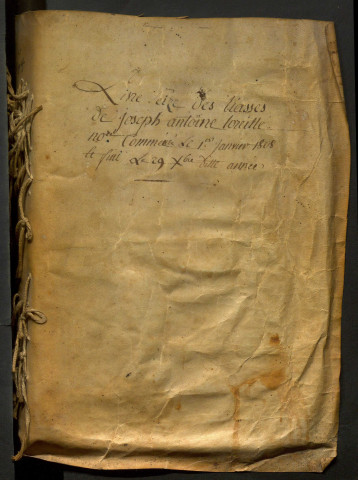 Livre des liasses
de joseph antoine
no.re Commencé Le 1er janvier 1808
et fini Le 29 Xbre ditte année